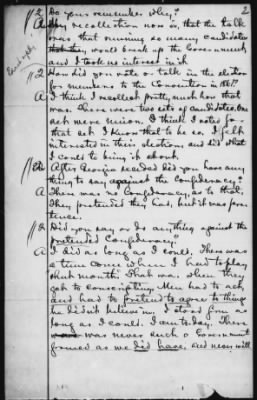 2
Q Do you remember why?
A My recollection now is, that the talk
was that running so many candidates
would break up the Government,
and I took no interest in it
Q How did you vote or talk in the election
for members to the Convention in 1861?
A I think I recollect pretty much how that
was. There were two sets of candidates. One
set were Union. I think I voted for
that set. I know that to be so. I felt
interested in their election, and did what
I could to bring it about.
Q After Georgia seceded did you have any
thing to say against the Confederacy?
A There was no Confederacy, as to that.
They pretended they had, but it was pre-
tence.
Q Did you say or do anything against the
"pretended Confederacy"
A I did as long as I could. There was
a time came when I had to play
shut mouth. That was when they
got to conscripting. Men had to act,
and had to pretend to agree to things
he didn't believe in. I stood firm as
long as I could. I am today. There
was never such a Government
formed as we did have, and never will